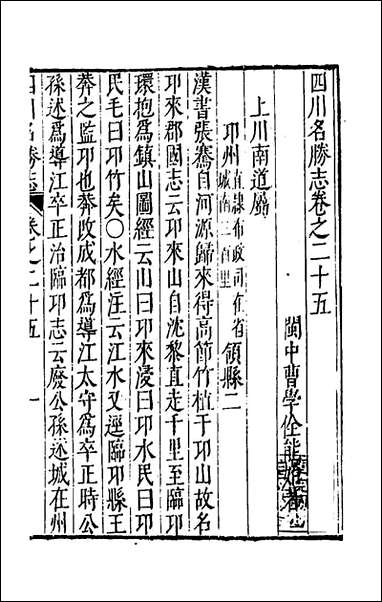 四川名勝志卷之二十五
閩中曹學佺能始著
上川南道屬
卭州直隸布政司在省城南三百里領縣二
漢書張騫自河源歸來得高節竹植于卭山故名
卭來郡國志云卭來山自沈黎直走千里至臨卭
環抱爲鎮山圖經云山曰卭來湲曰卭水民曰卭
民毛曰卭竹矣〇水經注云江水又逕臨卭縣王
莽之監卭也莽改成都爲導江太守爲卒正時公
孫述爲導江卒正治臨卭志云廢公孫述城在州
四川名勝志 卷之二十五 一